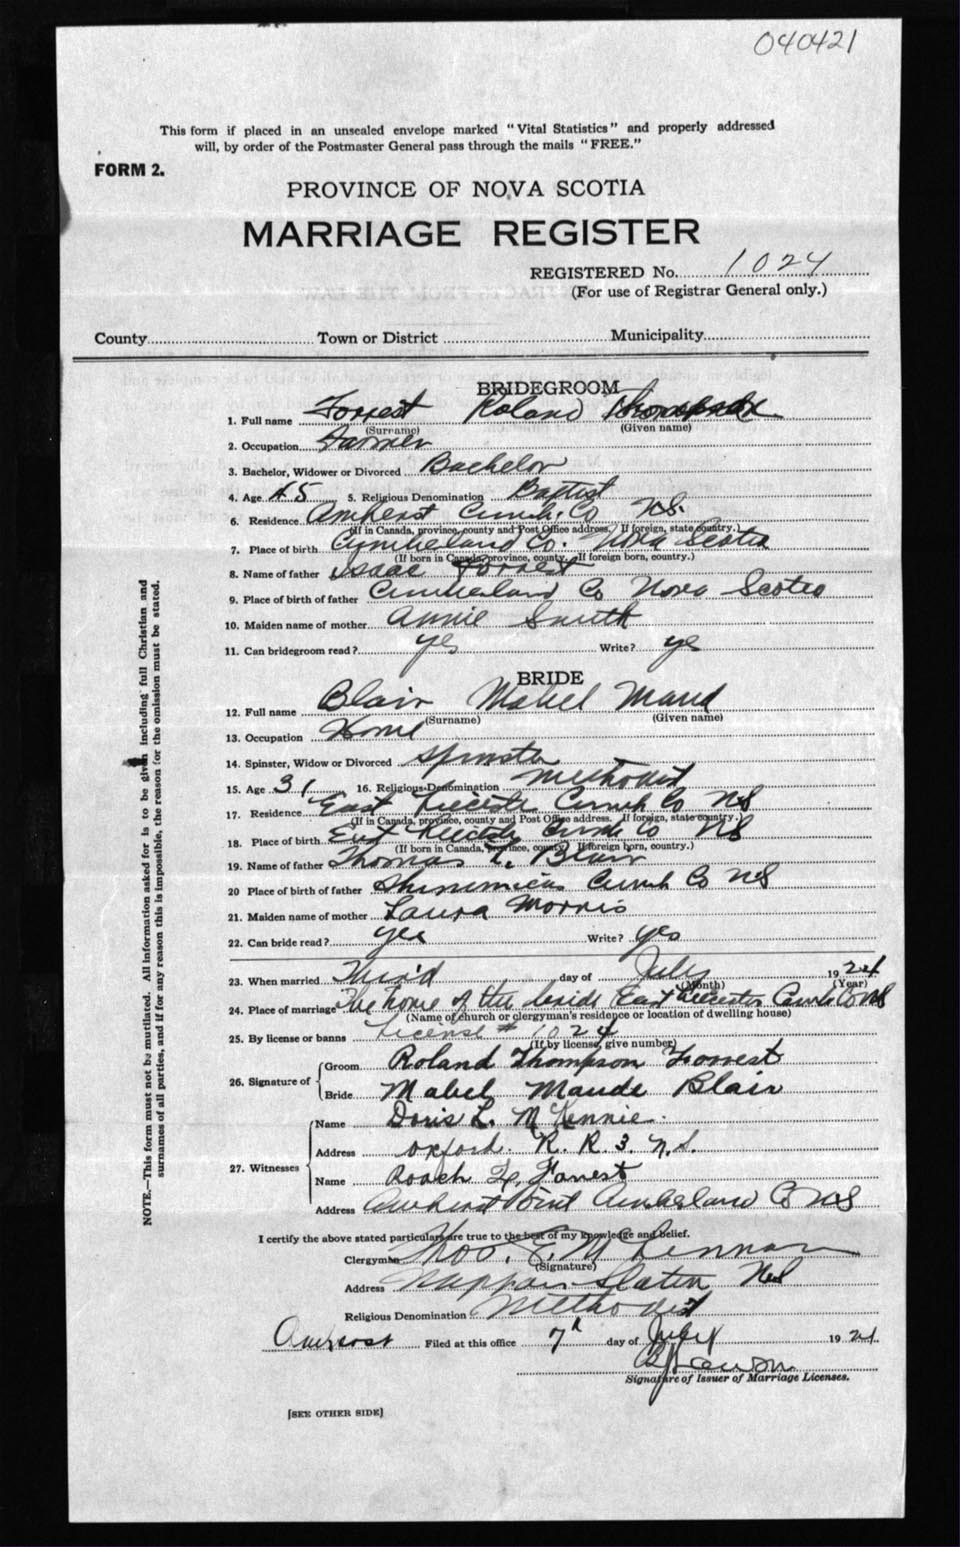 040421
This form if placed in an unsealed envelope marked "Vital Statistics" and properly addressed
will, by order of the Postmaster General pass through the mails "FREE."
FORM 2.
PROVINCE OF NOVA SCOTIA
MARRIAGE REGISTER
REGISTERED No. 1024
(For use of Registrar General only.)
County Town or District Municipality
BRIDEGROOM
1. Full name Forrest Roland Thompson
(Surname) (Given name)
2. Occupation Farmer
3. Bachelor, Widower or Divorced Bachelor
4. Age 45 5. Religious Denomination Baptist
6. Residence Amherst Cumb. Co N.S.
(If in Canada, province, county and Post Office address. If foreign, state country.)
7. Place of birth Cumberland Co. Nova Scotia
(If born in Canada, province, county. If foreign born, country.)
8. Name of father Isaac Forrest
9. Place of birth of father Cumberland Co Nova Scotia
10. Maiden name of mother Annie Smith
11. Can bridegroom read? yes Write? ye
BRIDE
12. Full name Blair Mabel Maud
(Surname) (Given name)
13. Occupation Home
14. Spinster, Widow or Divorced Spinster
15. Age 31 16. Religious Denomination Methodist
17. Residence East Leicester Cumb Co NS
(If in Canada, province, county and Post Office address. If foreign, state country.)
18. Place of birth East Leicester Cumb Co NS
(If born in Canada, province, county. If foreign born, country.)
19. Name of father Thomas Blair
20 Place of birth of father Shinimicas Cumb Co NS
21. Maiden name of mother Laura Morris
22. Can bride read? yes Write? yes
23. When married Third day of July 1924
(Month) (Year)
24. Place of marriage The home of the bride East Leicester Cumb Co NS
(Name of church or clergyman's residence or location of dwelling house)
25. By license or banns License # 1024
(If by license, give number)
26. Signature of Groom Roland Thompson Forrest
Bride Mabel Maude Blair
27. Witnesses Name Doris L. McKennie.
Address Oxford. R. R. 3. N.S.
Name Roach Forrest
Address Amherst Point Cumberland Co NS
I certify the above stated particulars are true to the best of my knowledge and belief.
Clergyman Thos. E. McLennan
(Signature)
Address Nappan Station NS
Religious Denomination Methodist
Amherst Filed at this office 7th day of July 1924
Signature of Issuer of Marriage Licenses.
[SEE OTHER SIDE]
NOTE.—This form must not be mutilated. All information asked for is to be given including full Christian and
surnames of all parties, and if for any reason this is impossible, the reason for the omission must be stated.